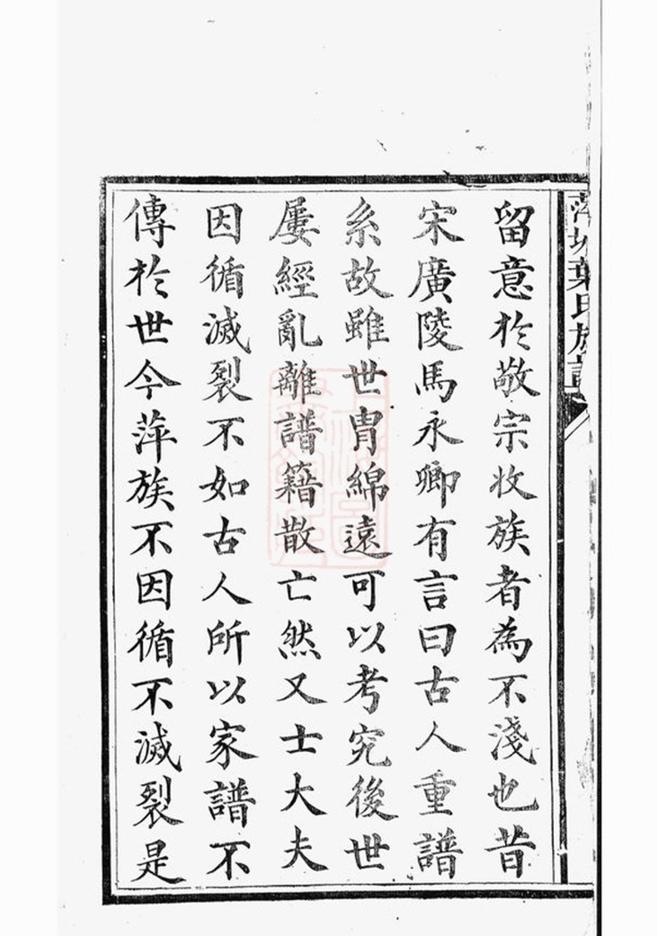 葉氏族譜
留意於敬宗收族者為不淺也昔
宋廣陵馬永卿有言曰古人重譜
系故雖世胄綿遠可以考究後世
屢經亂離譜籍散亡然又士大夫
因循滅裂不如古人所以家譜不
傳於世今萍族不因循不滅裂是